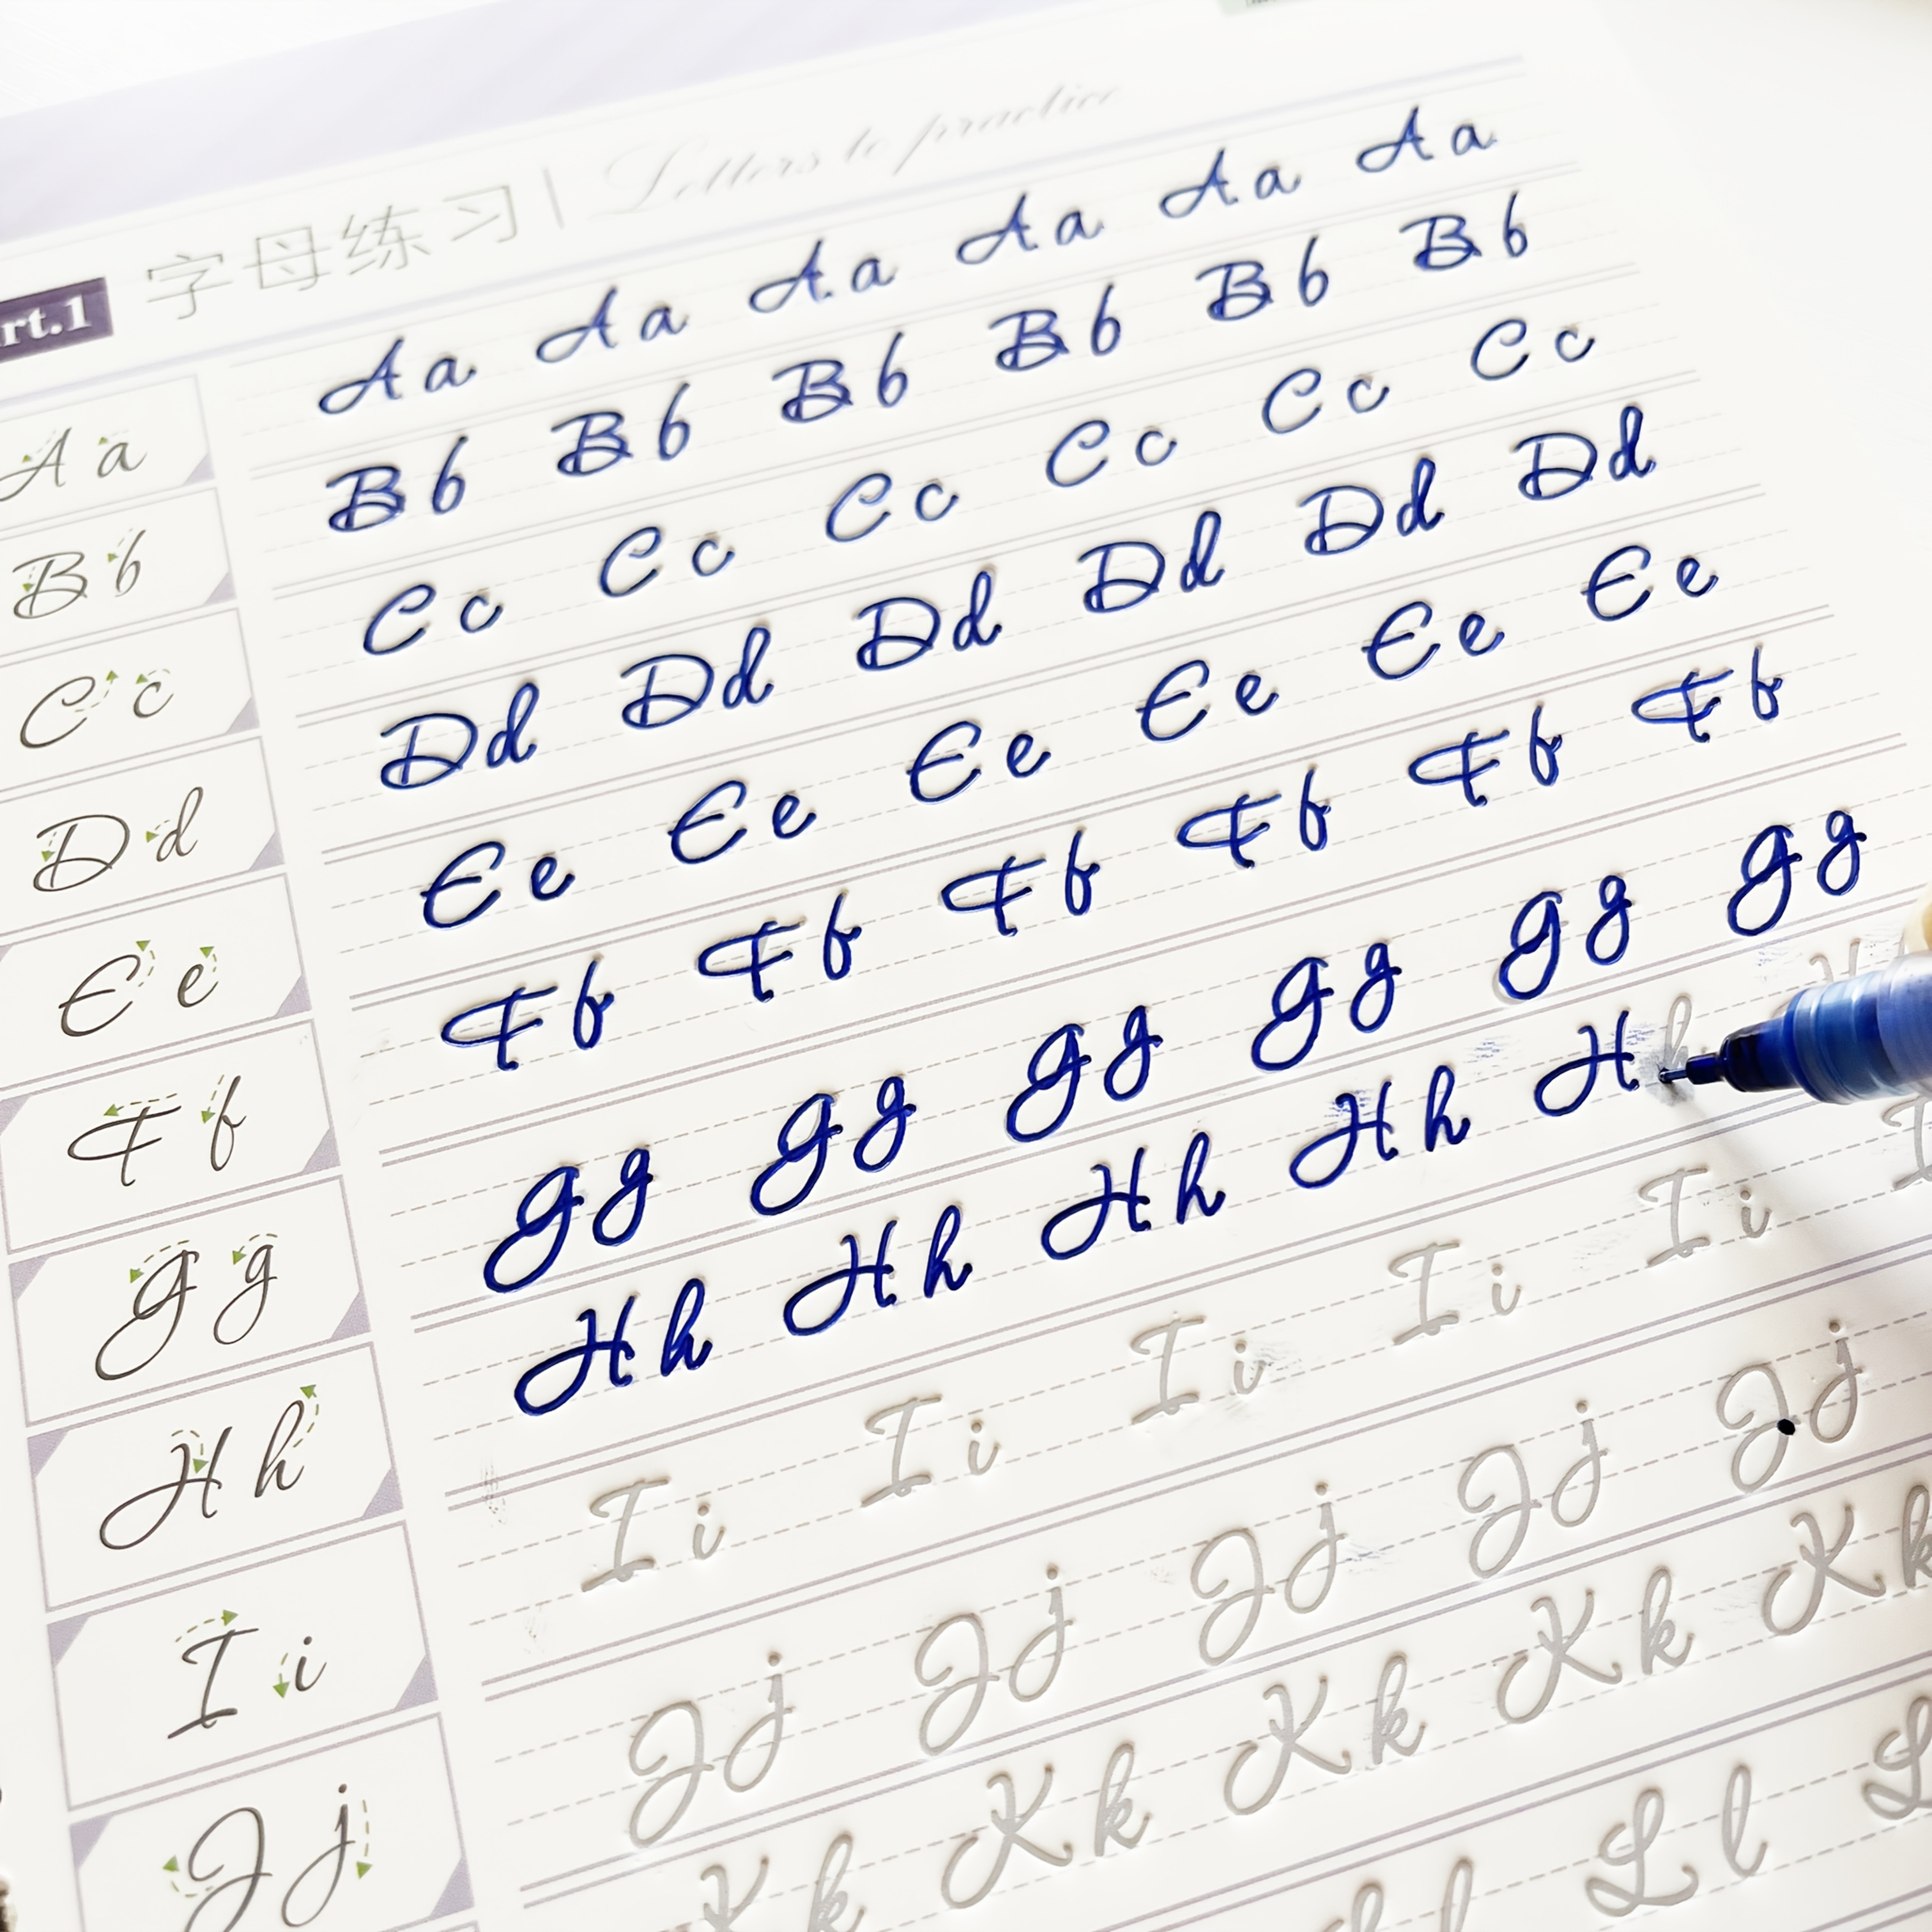 rt.1 字母练习 | Letters to practice
A a A a A a A a A a A a A a
B b B b B b B b B b B b B b
C c C c C c C c C c C c C c
D d D d D d D d D d D d D d
E e E e E e E e E e E e E e
F f F f F f F f F f F f F f
G g G g G g G g G g G g G g
H h H h H h H h H h H h H
I i I i I i I i I i I i I
J j J j J j J j J j J j
K k K k K k K k K k
l L l L